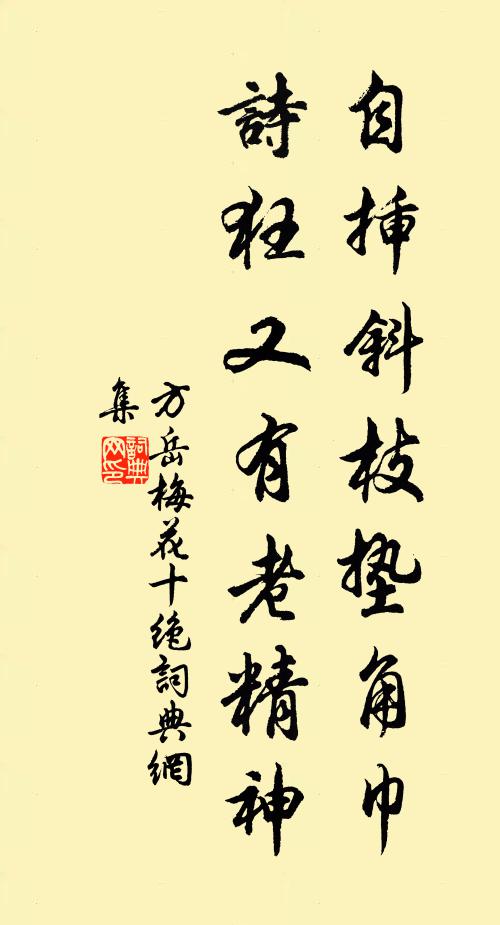 自挿斜枝墊角巾
詩狂又有老精神
方岳梅花十絶詞典網
集
詞典网印